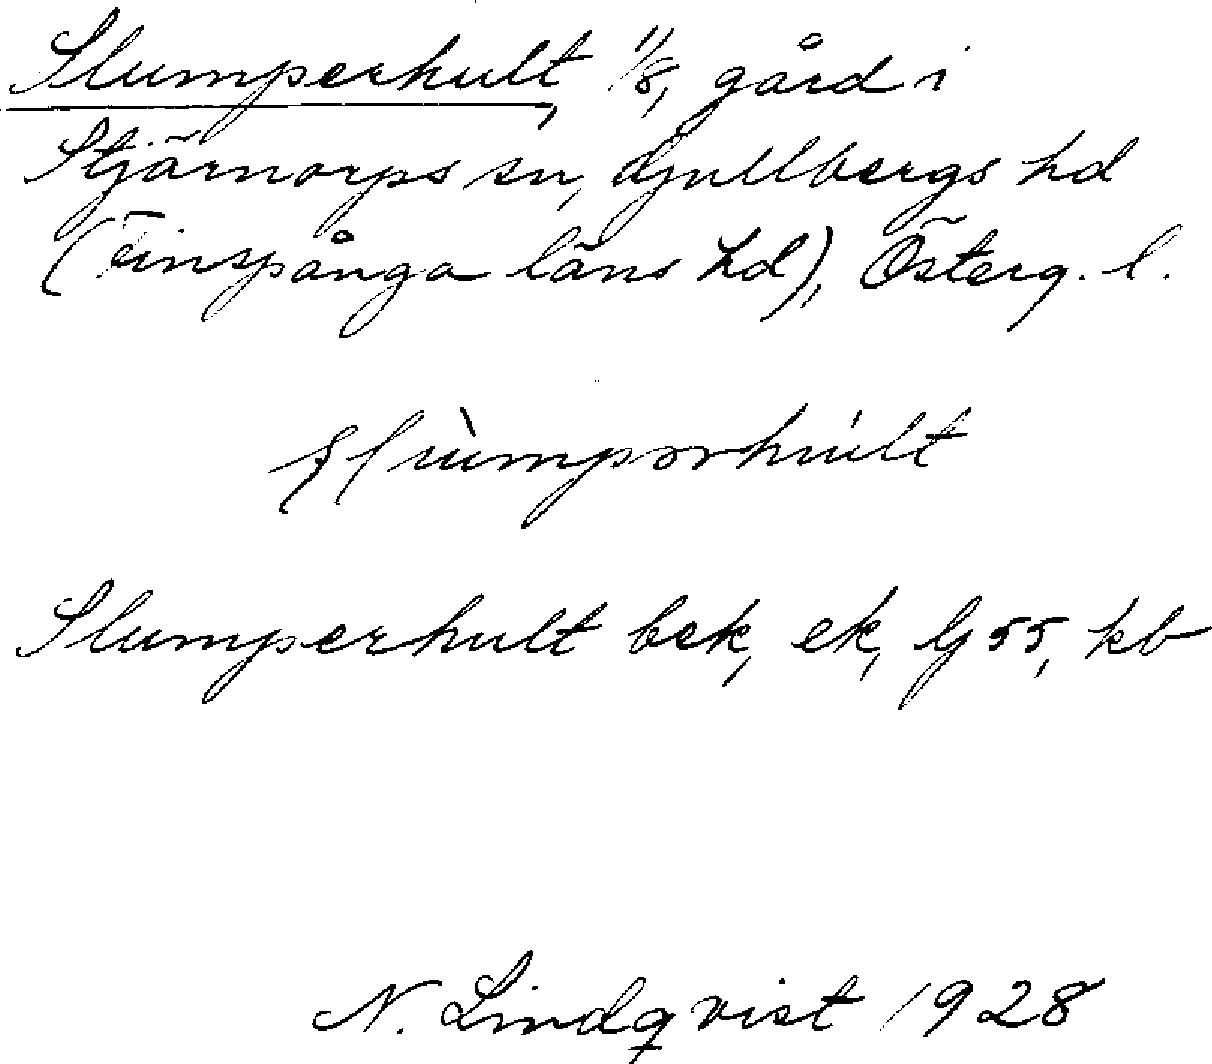 Slumperhult, 1/8, gård i
Stjärnorps sn, Gullbergs hd
(Finspånga läns hd), Österg. l.
Slumperhult bek, ek, Gj 55, kb
N. Lindqvist 1928